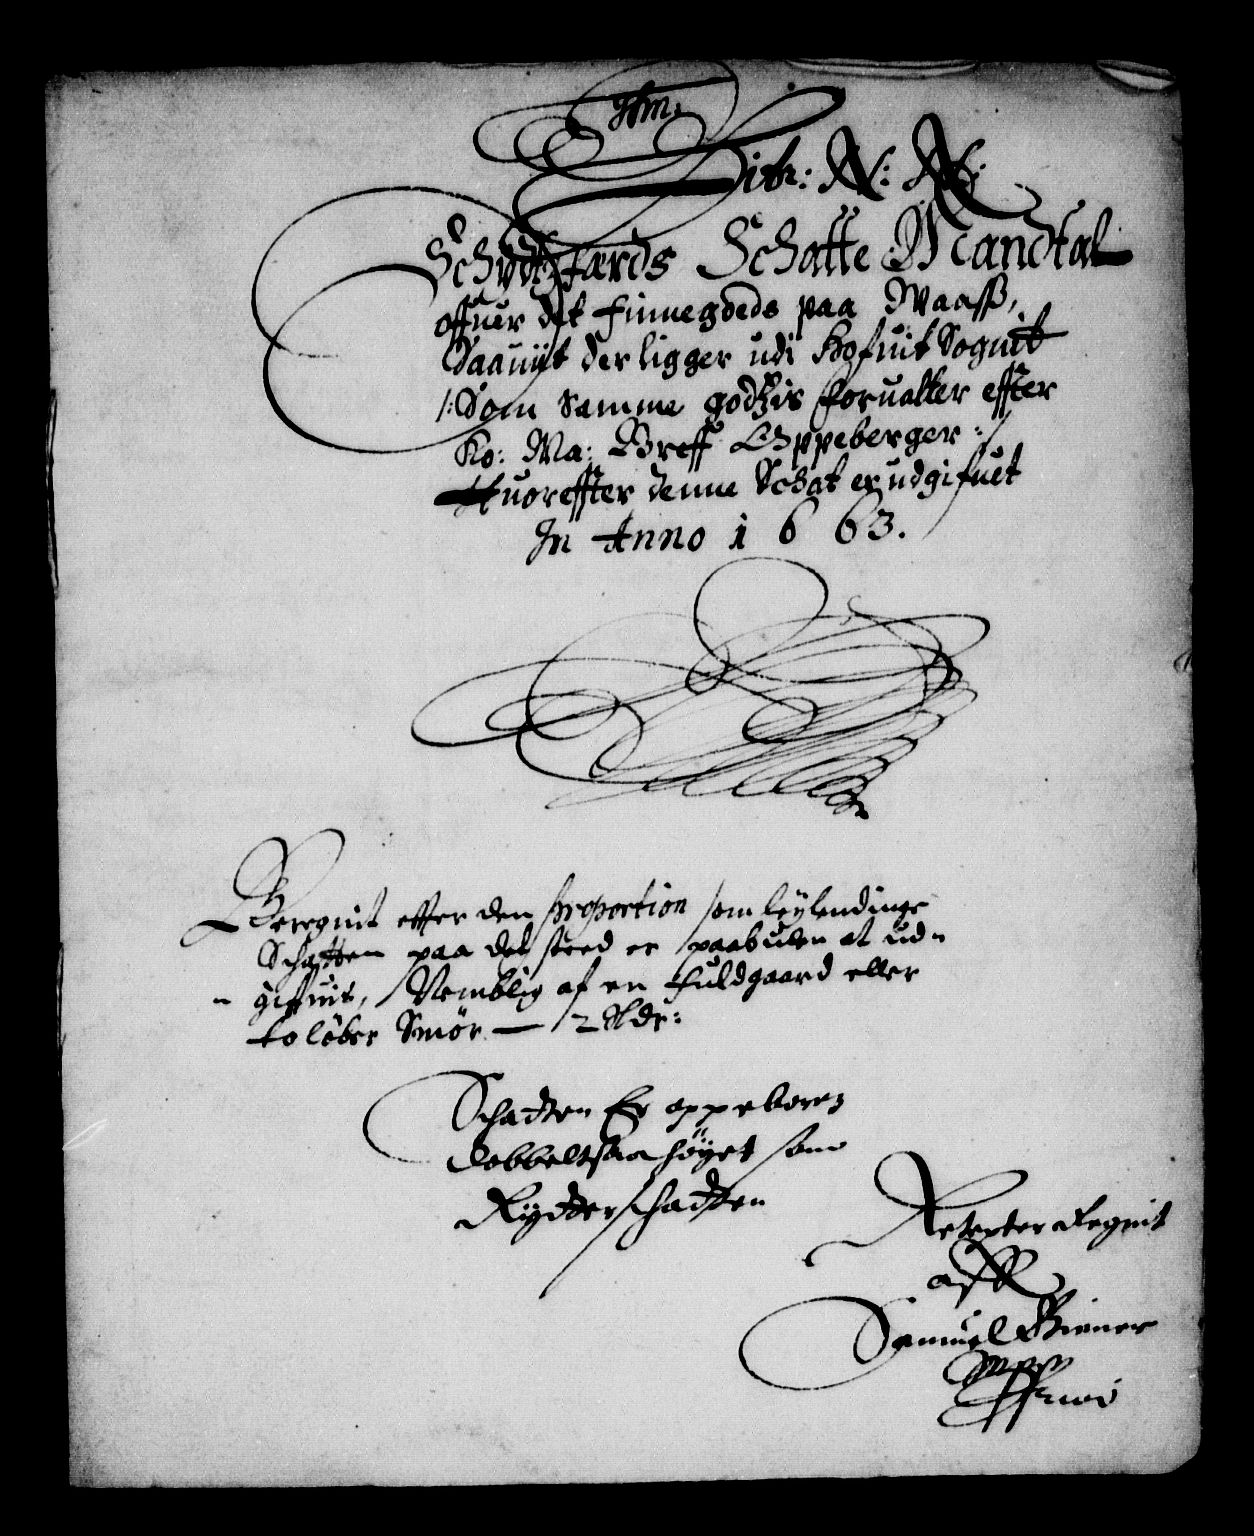 Litr: N: N:
Schydtzfærds Schatte Mandtal
offuer det finnegoeds paa Waass,
Saauiit der ligger udi Hofuit Sognit
/: Som Samme godtzis forualter effter
Ko: Ma: Breff Oppeberger :/
Huoreffter denne Schat er udgifuet
In Anno 1663.
Beregnit effter den proportion som leylendings
Schatten paa det sted er paabuden at ud-
- gifuis, Nemblig af en fuldgaard eller
to löber Smör — 2 Rdr:
Schatten Er oppeboren
dobbelt saa höyet som
Rytterschatten
Regnit
aff
Samuel